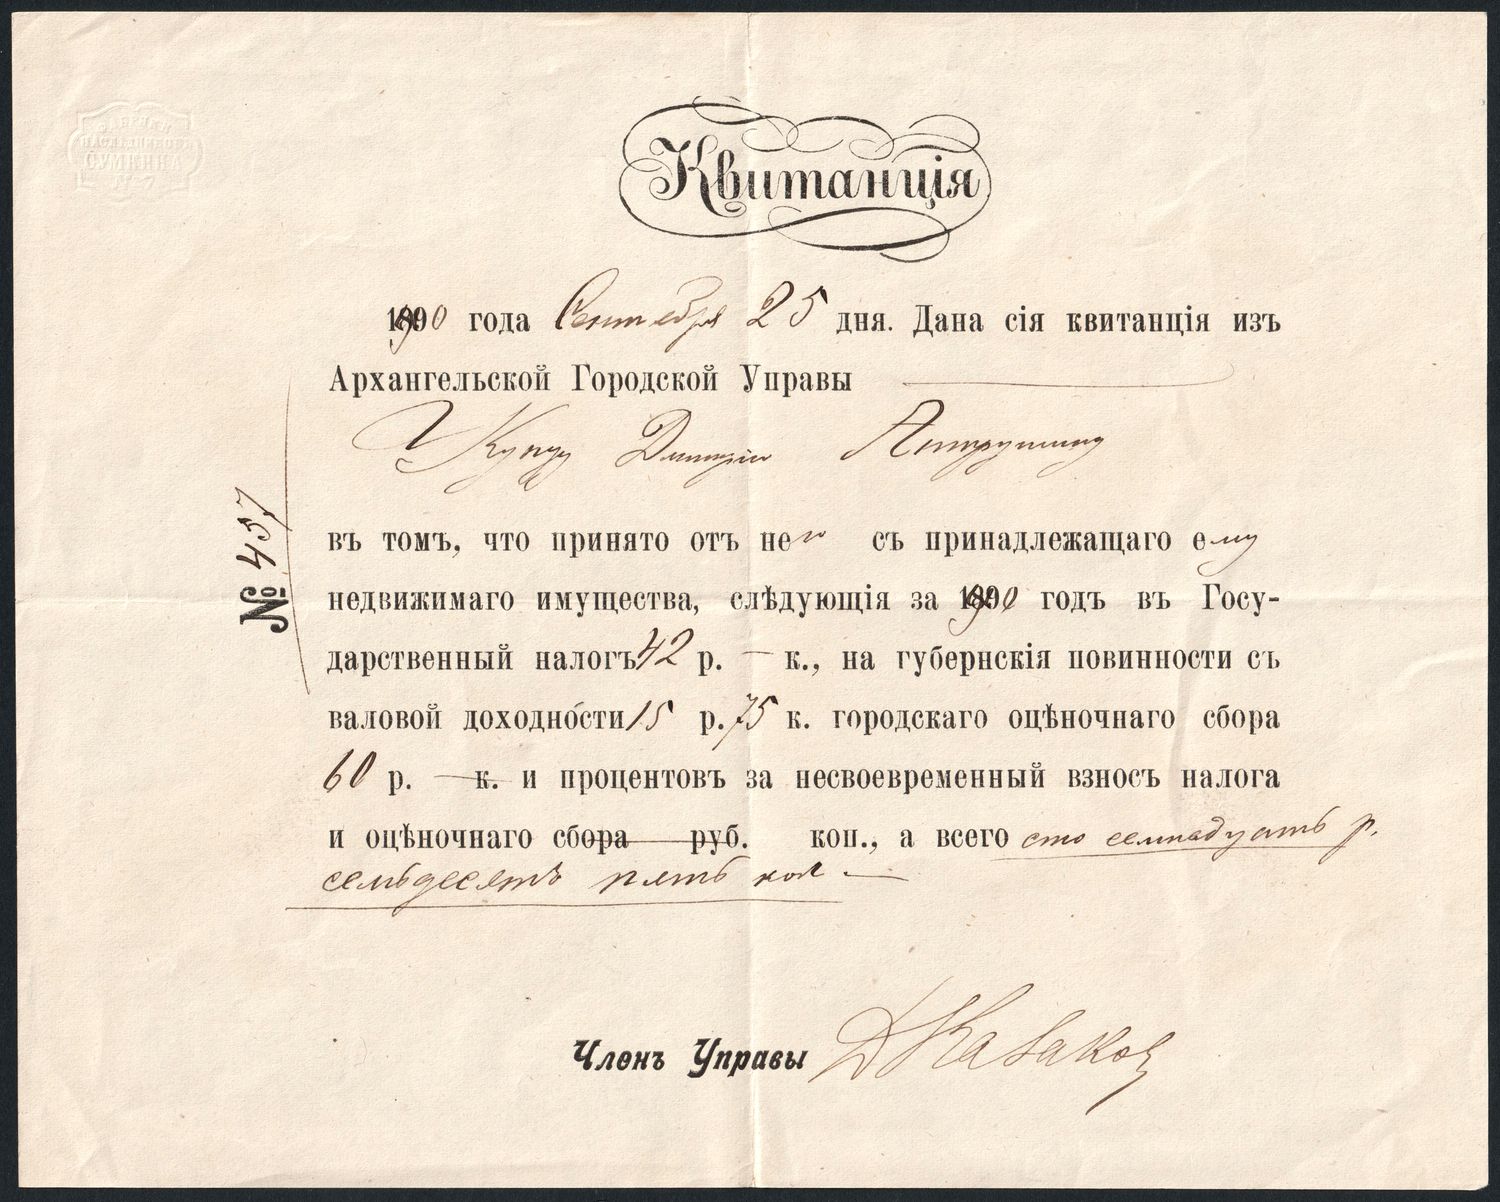 ФАБРИКИ
НАСЛѢДНИКОВЪ
СУМКИНА
№ 7
Квитанція
1890 года Сентября 25 дня. Дана сія квитанція изъ
Архангельской Городской Управы
Купцу Дмитрію Антрушину
№ 457
въ томъ, что принято отъ него съ принадлежащаго ему
недвижимаго имущества, слѣдующія за 1890 годъ въ Госу-
дарственный налогъ 42 р. — к., на губернскія повинности съ
валовой доходности 15 р. 75 к. городскаго оцѣночнаго сбора
60 р. — к. и процентовъ за несвоевременный взносъ налога
и оцѣночнаго сбора — руб. коп., а всего сто семнадцать р.
семьдесятъ пять коп —
Членъ Управы ДКазаковъ